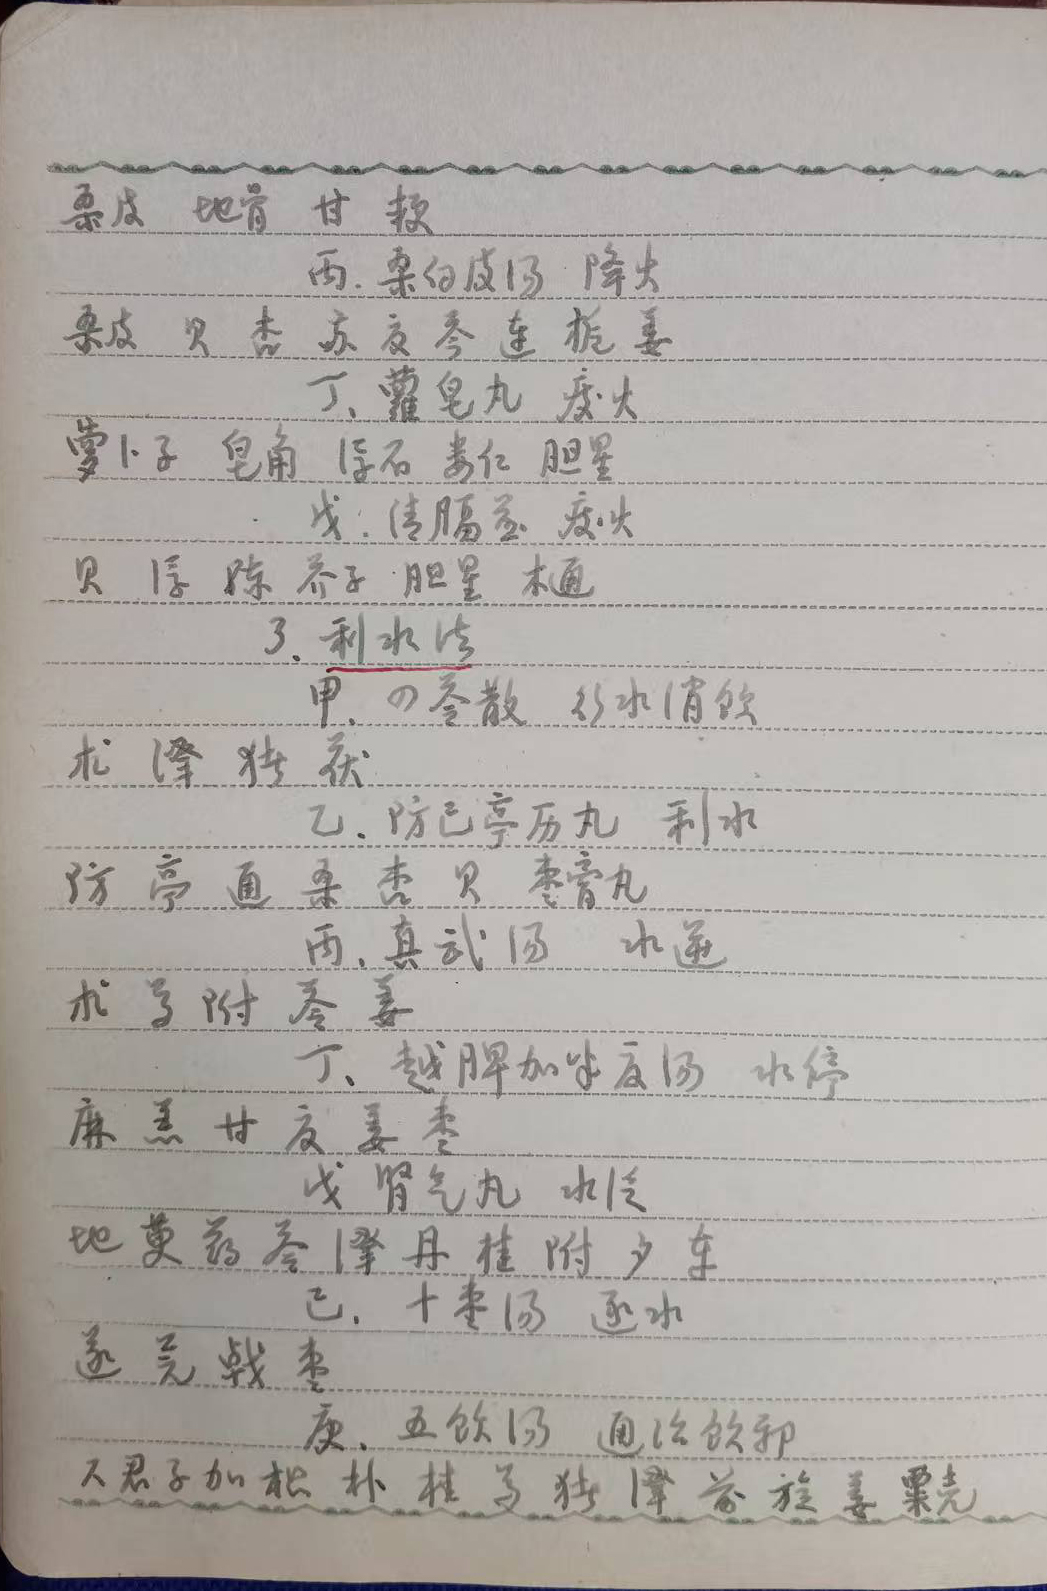 桑皮 地骨 甘 粳
丙. 桑白皮汤 降火
桑皮 贝 杏 苏 夏 芩 连 栀 姜
丁、蘿皂丸 痰火
萝卜子 皂角 浮石 娄仁 胆星
戊. 清膈 痰火
贝 浮 陈 芥子 胆星 木通
3. 利水法
甲. 四苓散 行水消飲
术 泽 猪 茯
乙. 防己葶历丸 利水
防 葶 通 桑 杏 贝 枣膏丸
丙. 真武汤 水逆
术 芍 附 苓 姜
丁、越脾加半夏汤 水停
麻 羔 甘 夏 姜 枣
戊 肾气丸 水泛
地 萸 药 苓 泽 丹 桂 附 夕 车
己. 十枣汤 逐水
遂 芫 戟 枣
庚. 五飲汤 通治飲邪
六君子加枳 朴 桂 芍 猪 泽 前 旋 姜